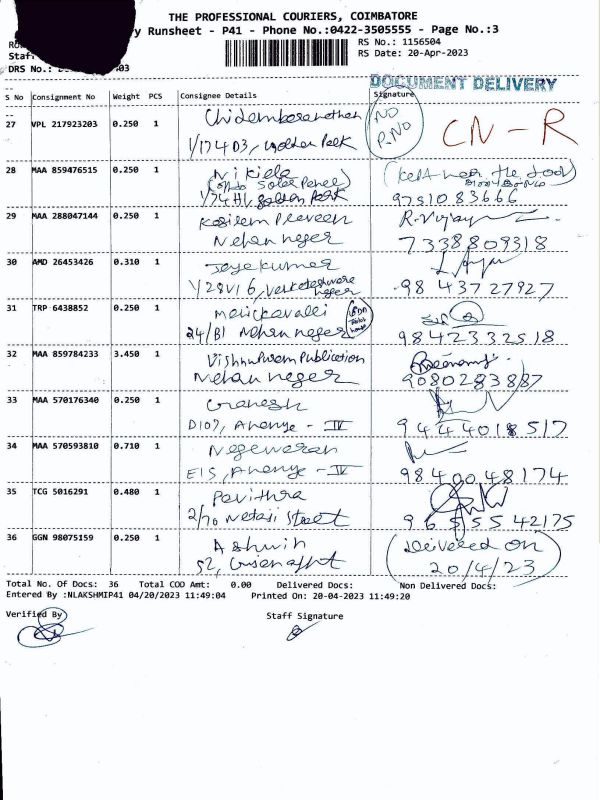 THE PROFESSIONAL COURIERS, COIMBATORE
y Runsheet - P41 - Phone No.:0422-3505555 - Page No.:3
RS No.: 1156504
Staf
RS Date: 20-Apr-2023
DRS No.: 03
DOCUMENT DELIVERY
S No Consignment No Weight PCS Consignee Details Signature
27 VPL 217923203 0.250 1 NO
1/174 D3, Golden Park P.NO CN-R
28 MAA 859476515 0.250 1 Nikiela (Kept near the door)
(Opp Solar Panel)
1/74 H1, Golden Park 9751083666
29 MAA 288047144 0.250 1 Praveen R.Vijay
Nehru nagar 7338809318
30 AMD 26453426 0.310 1 Jayakumar
1/28V16, Venkateshwara nagar 98 43727927
31 TRP 6438852 0.250 1 Manickavalli
24/B1 Nehru nagar 9842332518
32 MAA 859784233 3.450 1 Vishnupuram Publication
Nehru nagar 9080283887
33 MAA 570176340 0.250 1 Ganesh
D107, Ananya - IV 9444018517
34 MAA 570593810 0.710 1 Nageswaran
E15, Ananya - IV 9840048174
35 TCG 5016291 0.480 1 Pavithra
2/70 Netaji Street 965 55 42175
36 GGN 98075159 0.250 1 Ashwin Delivered on
20/4/23
Total No. Of Docs: 36 Total COD Amt: 0.00 Delivered Docs: Non Delivered Docs:
Entered By :NLAKSHMIP41 04/20/2023 11:49:04 Printed On: 20-04-2023 11:49:20
Verified By Staff Signature